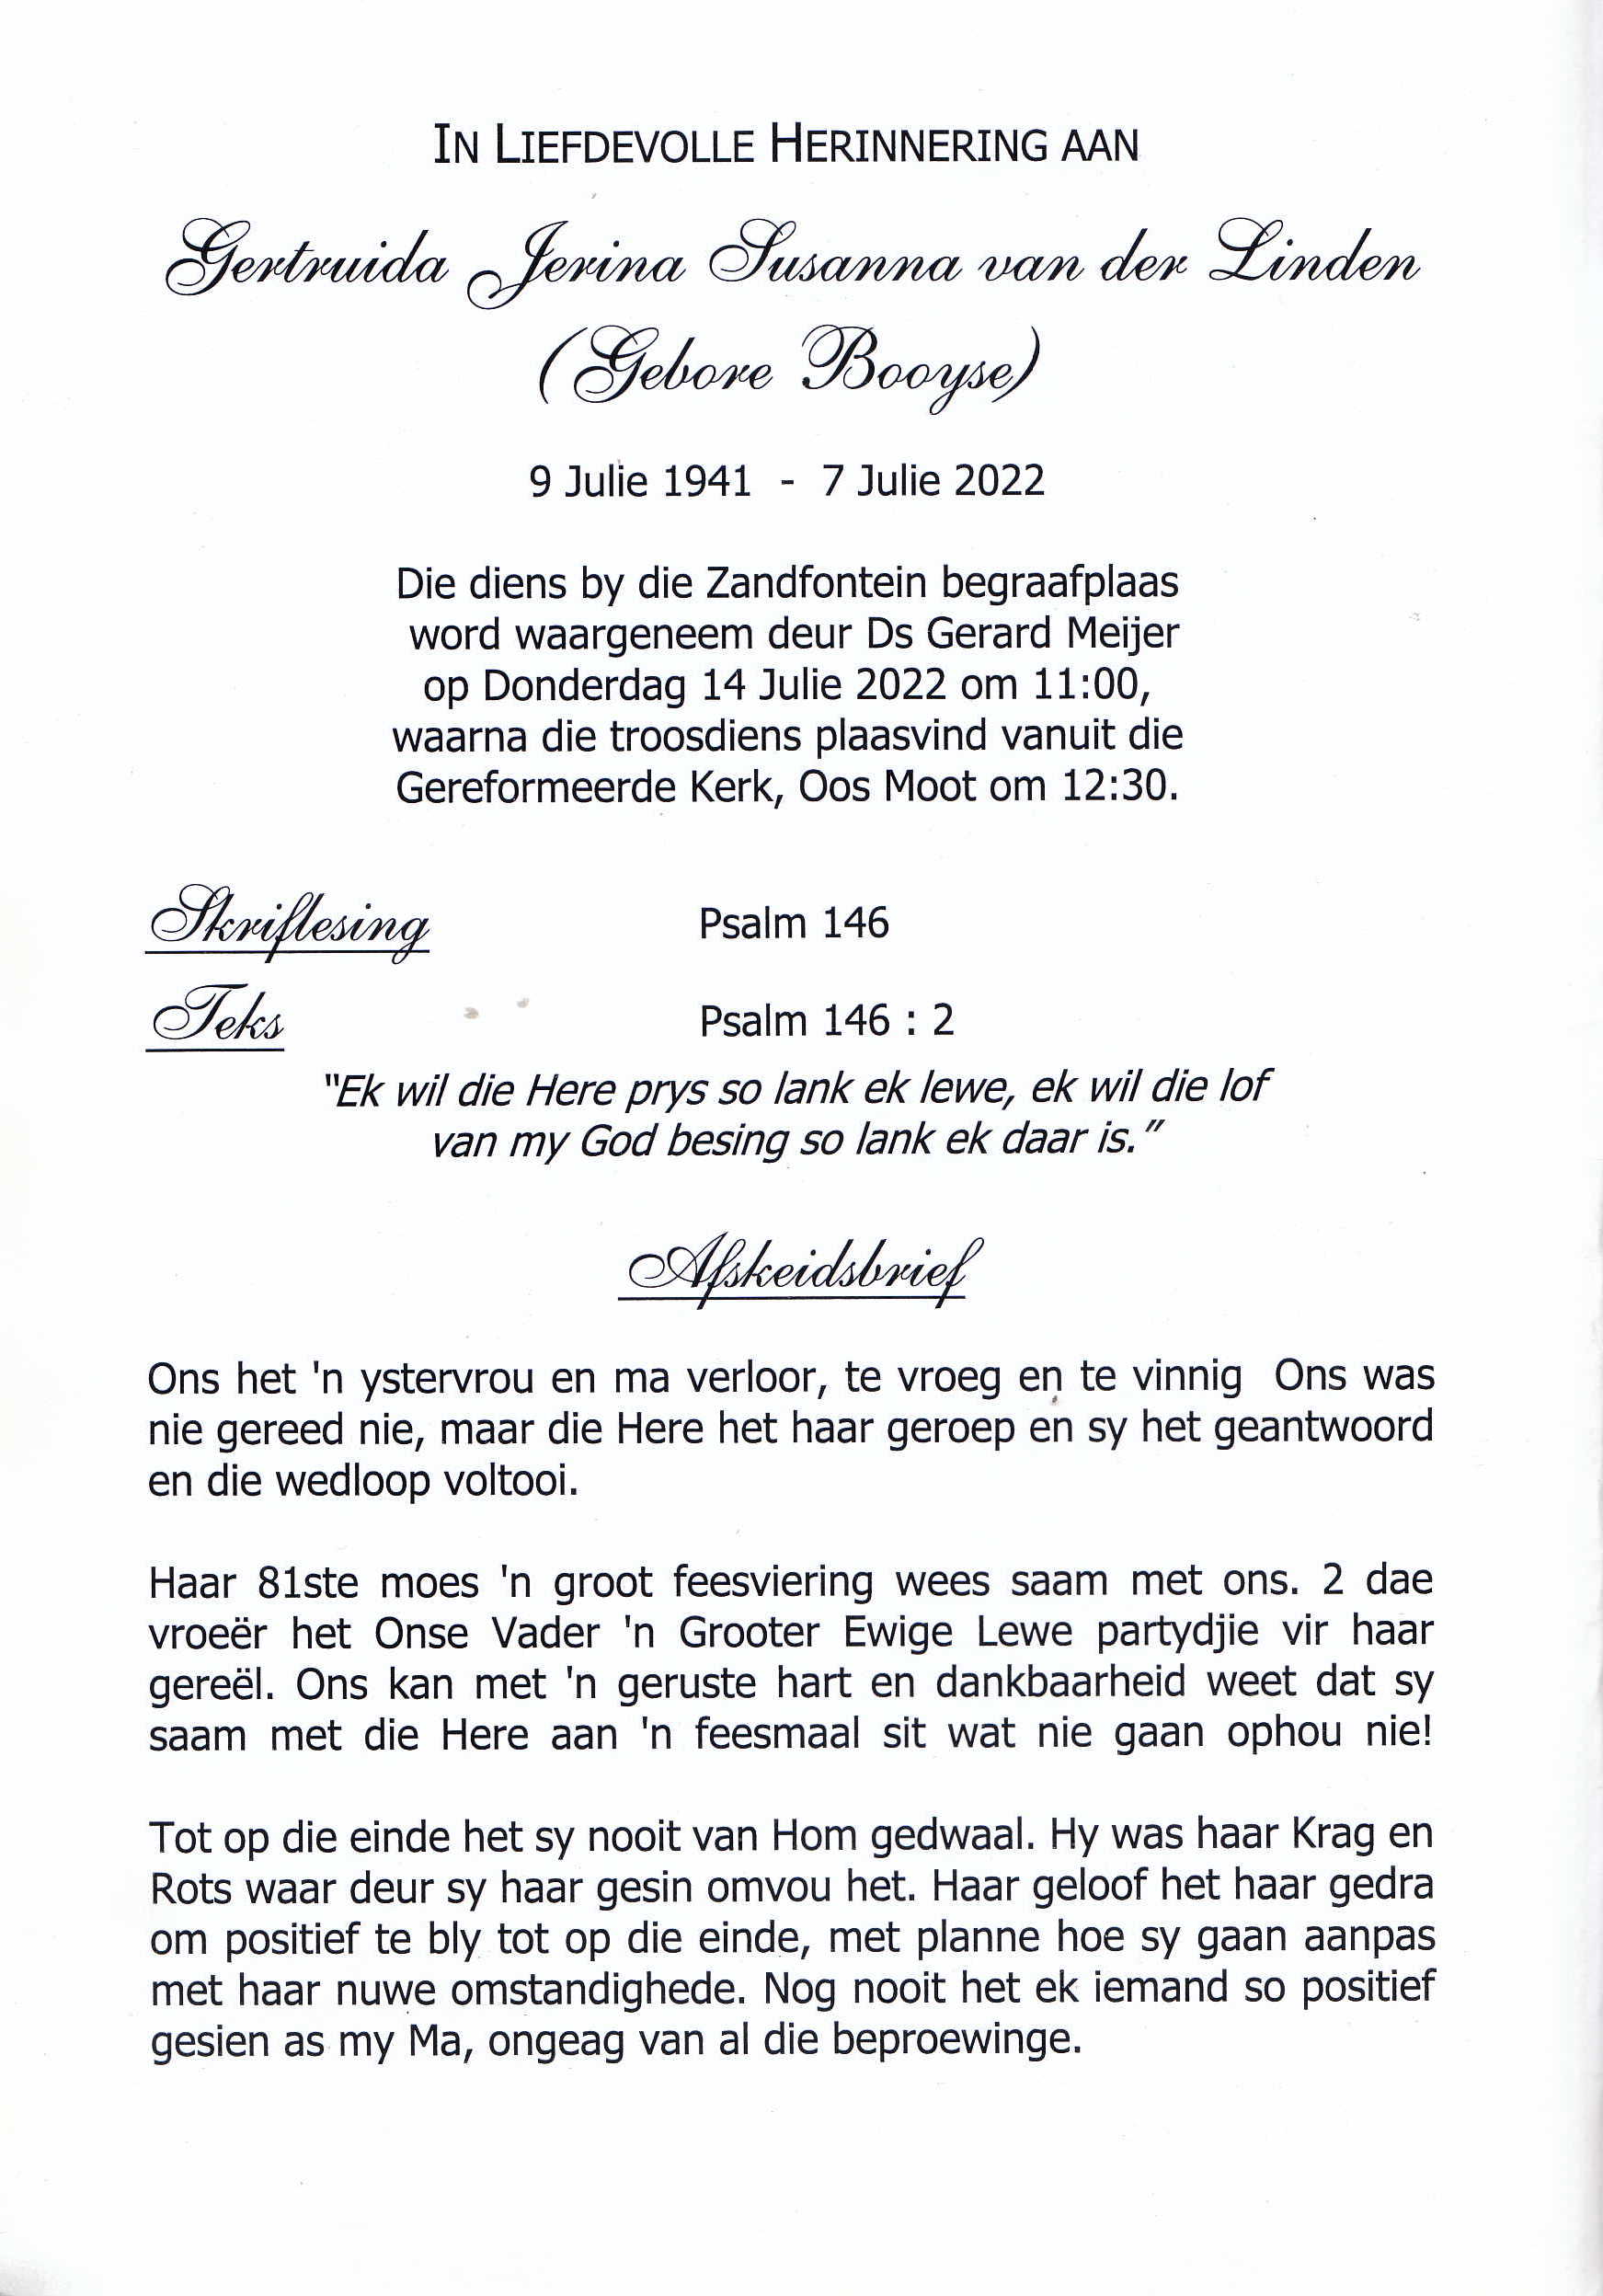 IN LIEFDEVOLLE HERINNERING AAN
Gertruida Jerina Susanna van der Linden
(Gebore Booyse)
9 Julie 1941 - 7 Julie 2022
Die diens by die Zandfontein begraafplaas
word waargeneem deur Ds Gerard Meijer
op Donderdag 14 Julie 2022 om 11:00,
waarna die troosdiens plaasvind vanuit die
Gereformeerde Kerk, Oos Moot om 12:30.
Skriflesing Psalm 146
Teks Psalm 146 : 2
"Ek wil die Here prys so lank ek lewe, ek wil die lof
van my God besing so lank ek daar is."
Afskeidsbrief
Ons het 'n ystervrou en ma verloor, te vroeg en te vinnig Ons was
nie gereed nie, maar die Here het haar geroep en sy het geantwoord
en die wedloop voltooi.
Haar 81ste moes 'n groot feesviering wees saam met ons. 2 dae
vroeër het Onse Vader 'n Grooter Ewige Lewe partydjie vir haar
gereël. Ons kan met 'n geruste hart en dankbaarheid weet dat sy
saam met die Here aan 'n feesmaal sit wat nie gaan ophou nie!
Tot op die einde het sy nooit van Hom gedwaal. Hy was haar Krag en
Rots waar deur sy haar gesin omvou het. Haar geloof het haar gedra
om positief te bly tot op die einde, met planne hoe sy gaan aanpas
met haar nuwe omstandighede. Nog nooit het ek iemand so positief
gesien as my Ma, ongeag van al die beproewinge.